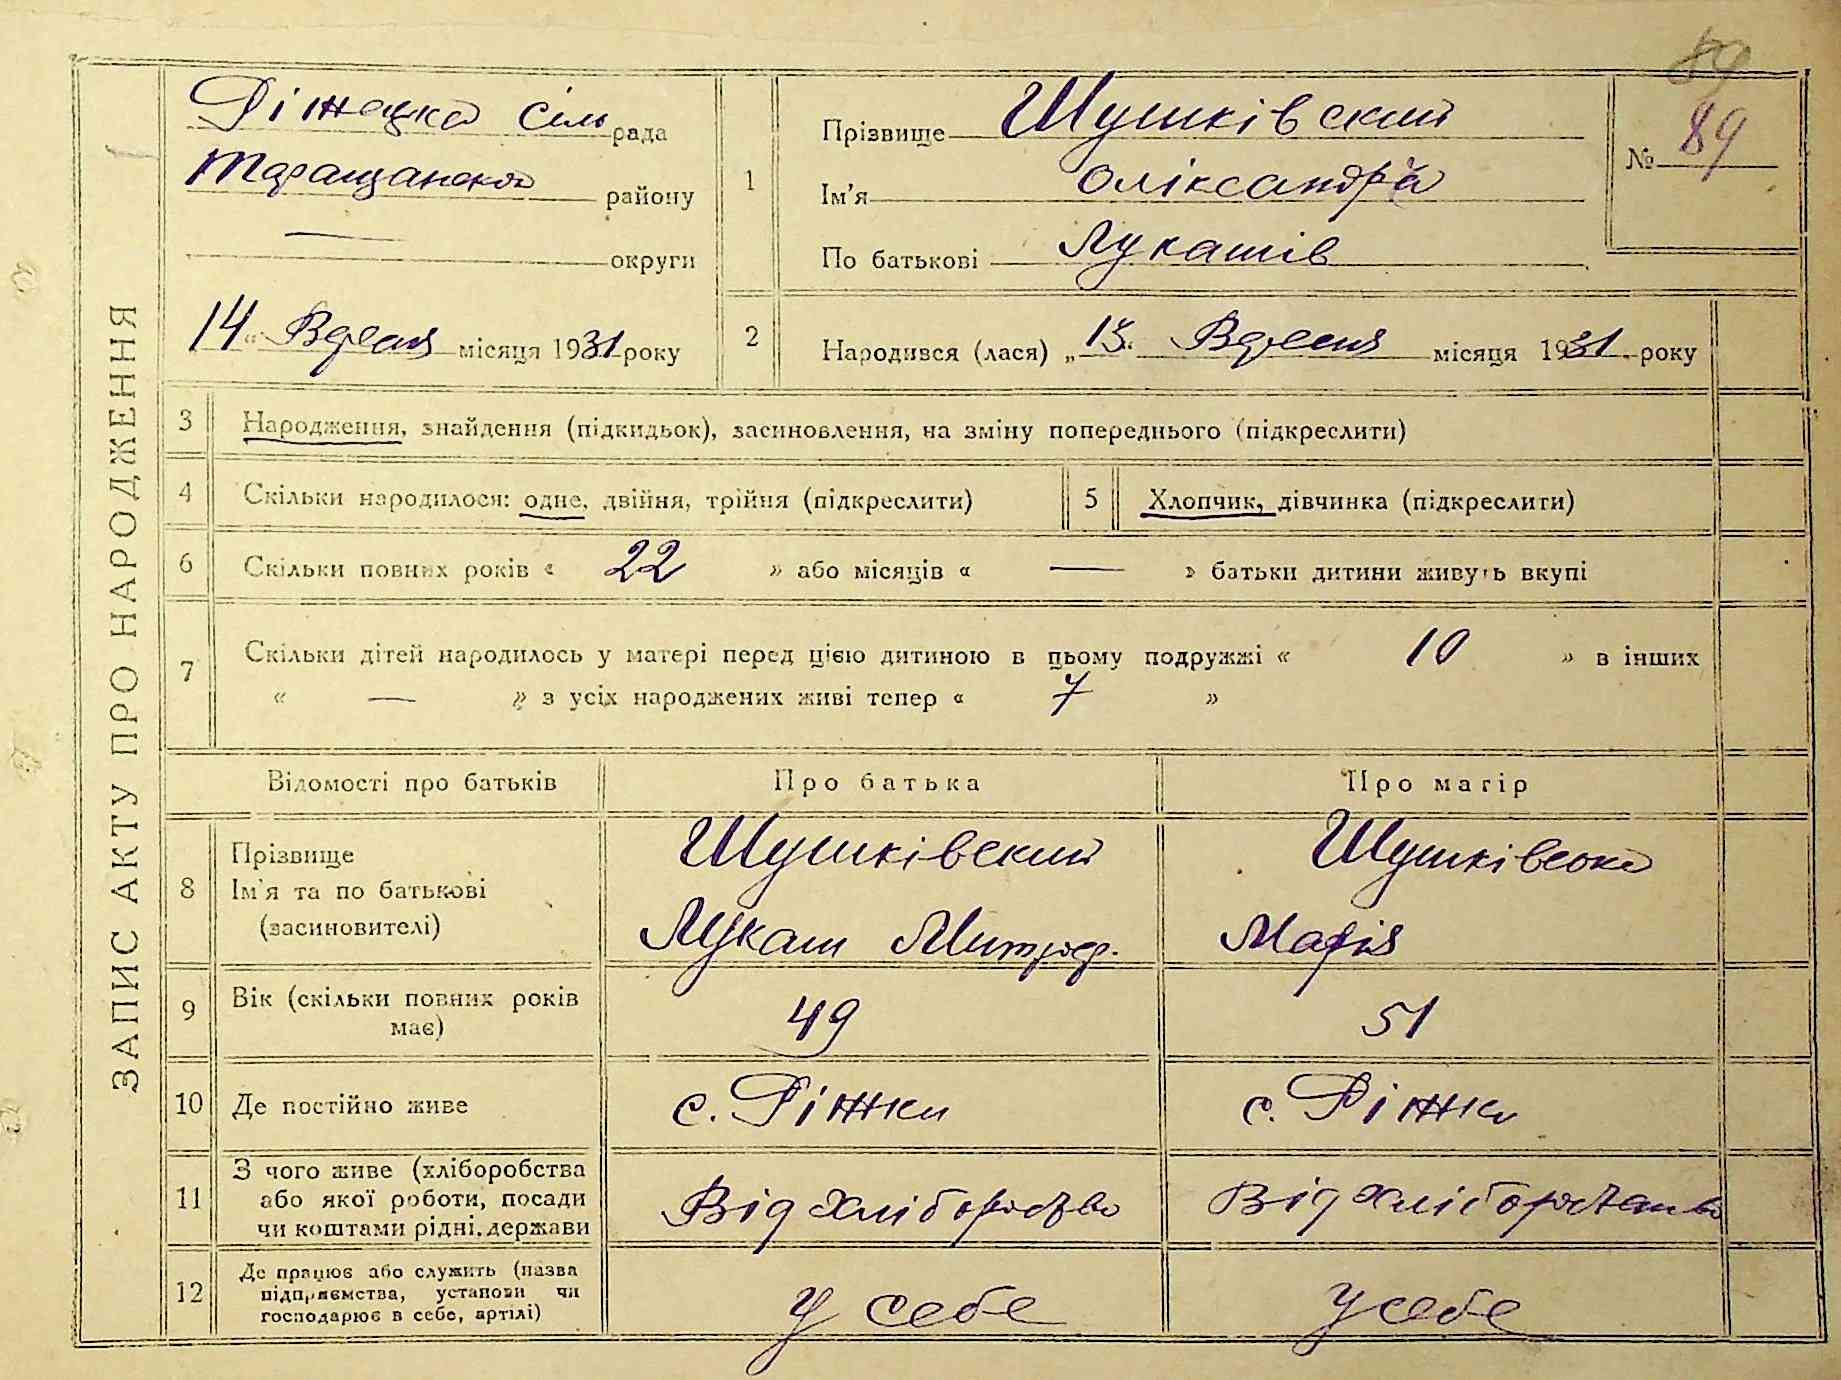 ЗАПИС АКТУ ПРО НАРОДЖЕННЯ
89
Ріжецка сіль рада
Таращанска району
— округи
„14“ Вересня місяця 1931 року
1
Прізвище Шушківский
Ім'я Оліксандра
По батькові Лукашів
№ 89
2
Народився (лася) „13“ Вересня місяця 1931 року
3 Народження, знайдення (підкидьок), засиновлення, на зміну попереднього (підкреслити)
4 Скільки народилося: одне, двійня, трійня (підкреслити)
5 Хлопчик, дівчинка (підкреслити)
6 Скільки повних років « 22 » або місяців « — » батьки дитини живуть вкупі
7 Скільки дітей народилось у матері перед цією дитиною в цьому подружжі « 10 » в інших
« — » з усіх народжених живі тепер « 7 »
Відомості про батьків Про батька Про матір
8 Прізвище
Ім'я та по батькові
(засиновителі)
Шушківский
Лукаш Митроф.
Шушківска
Марія
9 Вік (скільки повних років
має)
49
51
10 Де постійно живе
с. Ріжки
с. Ріжки
11 З чого живе (хліборобства
або якої роботи, посади
чи коштами рідні, держави
Від хлібороства
Від
12 Де працює або служить (назва
підприємства, установи чи
господарює в себе, артілі)
у себе
у себе